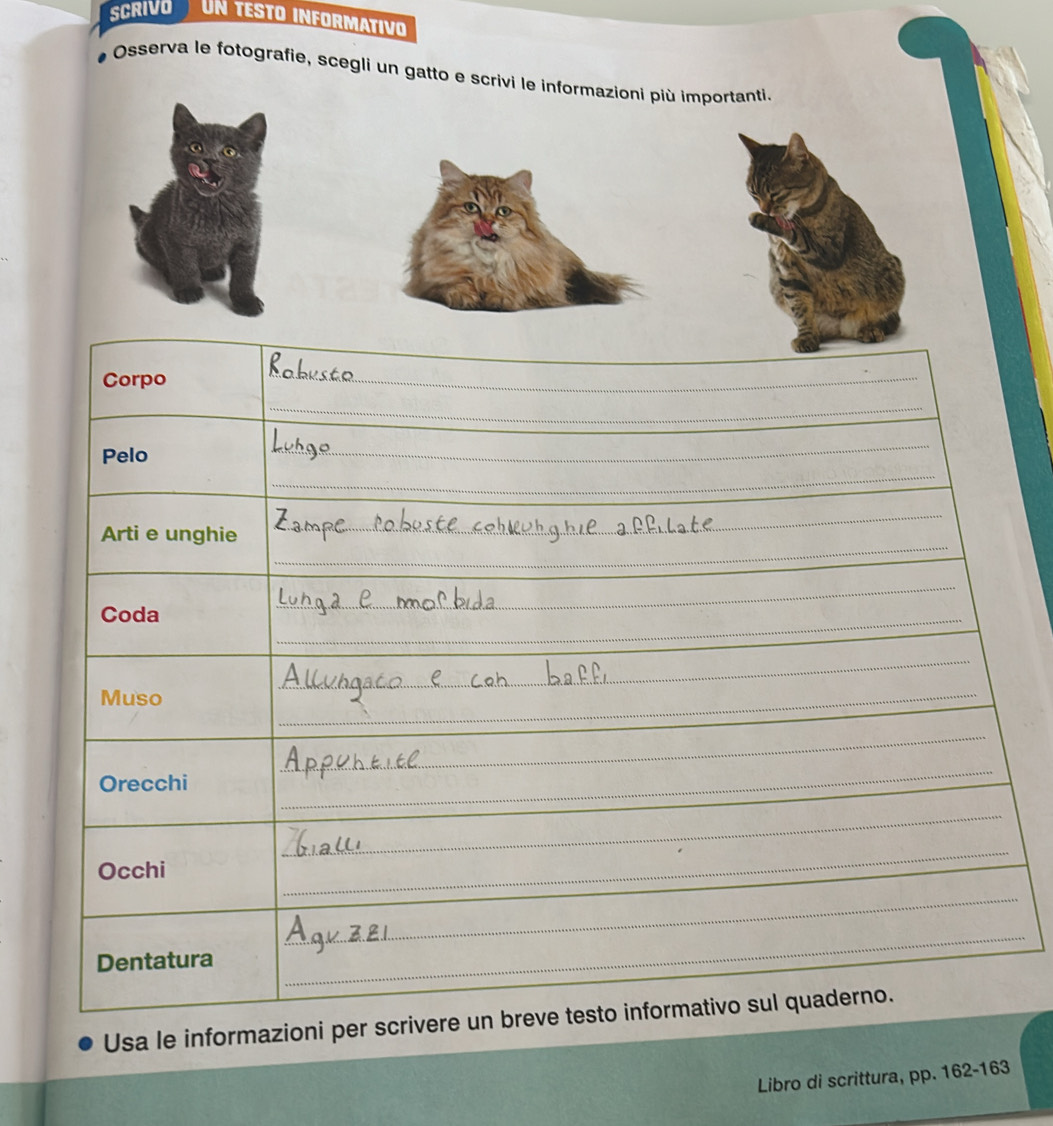 SCRIVO UN TESTO INFORMATIVO
Osserva le fotografie, scegli un gatto e scrivi le informazioni più importanti.
Corpo Robusto
Pelo Lungo
Arti e unghie Zampe robuste con unghie affilate
Coda Lunga e morbida
Muso Allungato e con baffi
Orecchi Appuntite
Occhi Gialli
Dentatura Aguzzi
Usa le informazioni per scrivere un breve testo informativo sul quaderno.
Libro di scrittura, pp. 162-163